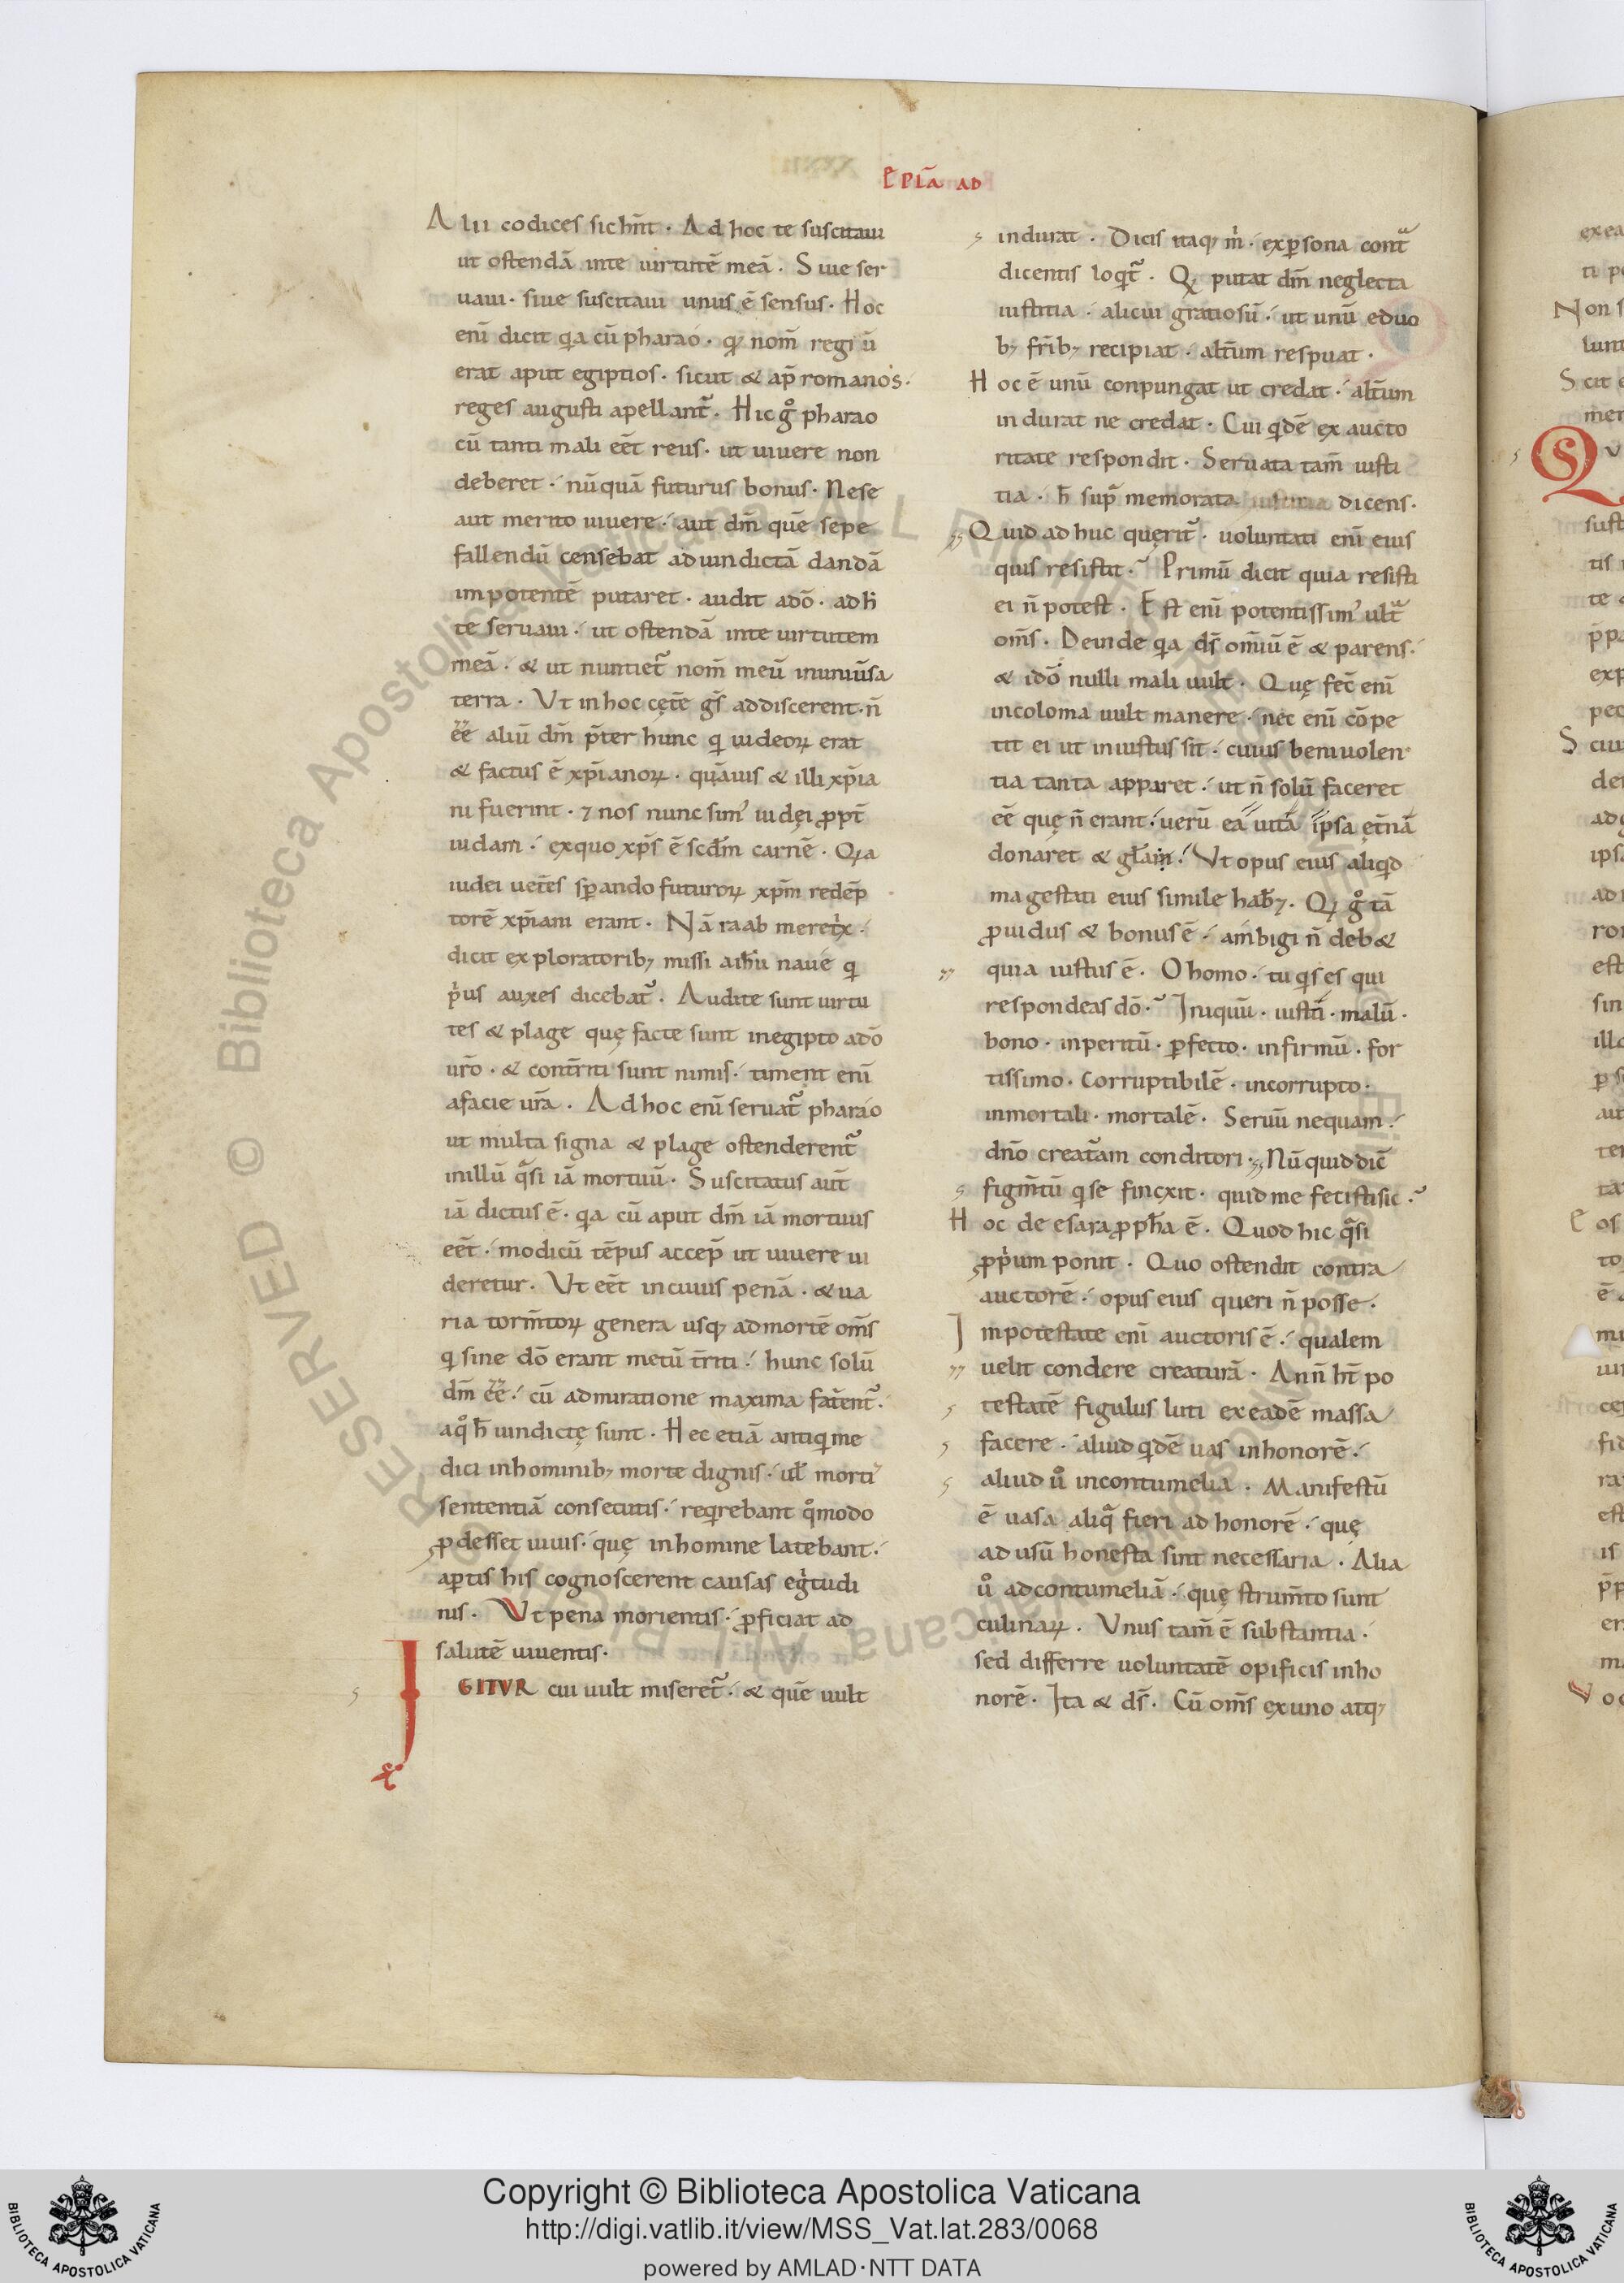 EPLA AD
Alii codices sic hn̄t · Ad hoc te suscitaui
ut ostendā inte uirtutē meā · Siue ser
uaui · siue suscitaui unus ē sensus · Hoc
enī dicit q̣a cū pharao · qꝫ nom̄ regiū
erat aput egiptios · sicut & ap̄ romanos ·
reges augusti apellant᷑ · Hic gͦ pharao
cū tanti mali eēt reus · ut uiuere non
deberet · nūquā futurus bonus · Nese
aut merito uiuere · aut dm̄ quē sepe
fallendū censebat aduindictā dandā
impotentē putaret · audit adō · adh̄
te seruaui · ut ostendā inte uirtutem
meā · & ut nuntiet᷑ nom̄ meū inuniūsa
terra · Vt inhoc cęt̄e gs̄ addiscerent · n̄
eē aliū dm̄ p̄ter hunc q iudeoꝝ erat
& factus ē xp̄ianoꝝ · quāuis & illi xp̄ia
ni fuerint · ⁊ nos nunc sim᾽ iudęi ꝓpt̄
iudam · exquo xp̄s ē scdm̄ carnē · Qꝛa
iudei uet̄es sꝑando futuroꝝ xpm̄ redēp
torē xp̄iani erant · Nā raab meretix ·
dicit exploratoribꝫ missi aih̄u naue q
p̍us auxes dicebat᷑ · Audite sunt uirtu
tes & plage quę facte sunt inegipto adō
ur̄o · & cont̄riti sunt nimis · timent enī
afacie ur̄a · Adhoc enī seruat᷑ pharao
ut multa signa & plage ostenderent᷑
inillū qͣsi iā mortuū · Suscitatus aut̄
iā dictus ē · q̣a cū aput dm̄ iā mortuus
eēt · modicū tēpus accep̄ ut uiuere ui
deretur · Vt eēt incuius penā · & ua
ria torm̄toꝝ genera usqꝫ admortē oms̄
q sine dō erant metū t̄riti · hunc solū
dm̄ eē · cū admiratione maxima fat̄ent᷑ ·
aqͦ h̄ uindictę sunt · Hec etiā antiq me
dici inhominibꝫ morte dignis · ul̄ morti᾽
sententiā consecutis · reqrebant qͦmodo
ꝓdesset uiuis · quę inhomine latebant ·
aꝑtis his cognoscerent causas eg̍tudi
nis · Vt pena morientis · ꝓficiat ad
salutē uiuentis ·
IGITVR cui uult miseret᷑ · & quē uult
indurat · Dicis itaqꝫ m̍ · exꝑsona contͣ
dicentis loqt᷑ · Qꝫ putat dm̄ neglecta
iustitia · alicui gratiosū · ut unū eduo
bꝫ fr̄ibꝫ recipiat · alt̄um respuat ·
Hoc ē unū conpungat ut credat · alt̄um
indurat ne credat · Cui qdē ex aucto
ritate respondit · Seruata tam̄ iusti
tia · h̄ supͣ memorata iustitia dicens ·
Quid adhuc quęrit᷑ · uoluntati enī eius
quis resistit · Primū dicit quia resisti
ei n̄ potest · Est enī potentissim᾽ ultͣ
oms̄ · Deinde q̣a ds̄ om̄iū ē & parens ·
& idō nulli mali uult · Quę fec̄ enī
incoloma uult manere · nec enī cōpe
tit ei ut iniustus sit · cuius beniuolen
tia tanta apparet · ut n̄ solū faceret
eē quę n̄ erant · uerū eā uitā ipsa ęt̄nā
donaret & gl̄am · Vt opus eius aliqd
magestati eius simile hab̄ꝫ · Qꝫ gͦ tā
ꝓuidus & bonus ē · ambigi n̄ deb&
quia iustus ē · O homo · tu qs es qui
respondeas dō · Iniquū · iustū · malū ·
bono · inperitū · ꝑfecto · infirmū · for
tissimo · Corruptibilē · incorrupto ·
inmortali · mortalē · Seruū nequam ·
dn̄o creatam conditori · Nūquid dic̄
figm̄tū q se fincxit · quid me fecisti sic ·
Hoc de esaia ꝓph̄a ē · Quod hic qͣsi
ꝓp̍um ponit · Quo ostendit contra
auctorē · opus eius queri n̄ posse ·
Inpotestate enī auctoris ē · qualem
uelit condere creaturā · An n̄ ht̄ po
testatē figulus luti exeadē massa
facere · aliud qdē uas inhonorē ·
aliud uͦ incontumeliā · Manifestū
ē uasa aliqͣ fieri ad honorē · quę
ad usū honesta sint necessaria · Alia
uͦ adcontumeliā · quę strum̄to sunt
culinaꝝ · Vnus tam̄ ē substantia ·
sed differre uoluntatē opificis inho
norē · Ita & ds̄ · Cū oms̄ exuno atqꝫ
Copyright © Biblioteca Apostolica Vaticana
http://digi.vatlib.it/view/MSS_Vat.lat.283/0068
powered by AMLAD·NTT DATA
BIBLIOTECA APOSTOLICA VATICANA
BIBLIOTECA APOSTOLICA VATICANA